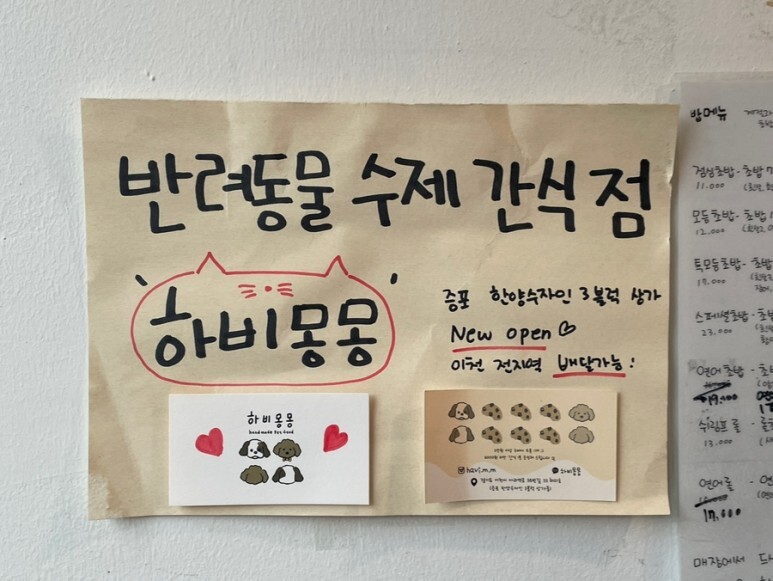 반려동물 수제 간식 점
'하비몽몽'
증포 한양수자인 3블럭 상가
New open♡
이천 전지역 배달가능!
하비몽몽
handmade pet food
하비몽몽
밥메뉴
점심초밥 - 초밥
11.000
모듬초밥 - 초밥
12.000
특모듬초밥 - 초밥
스페셜초밥 - 초밥
23.000
연어초밥 -
쉬림프롤 -
13.000
연어롤 -
17.000
매장에서